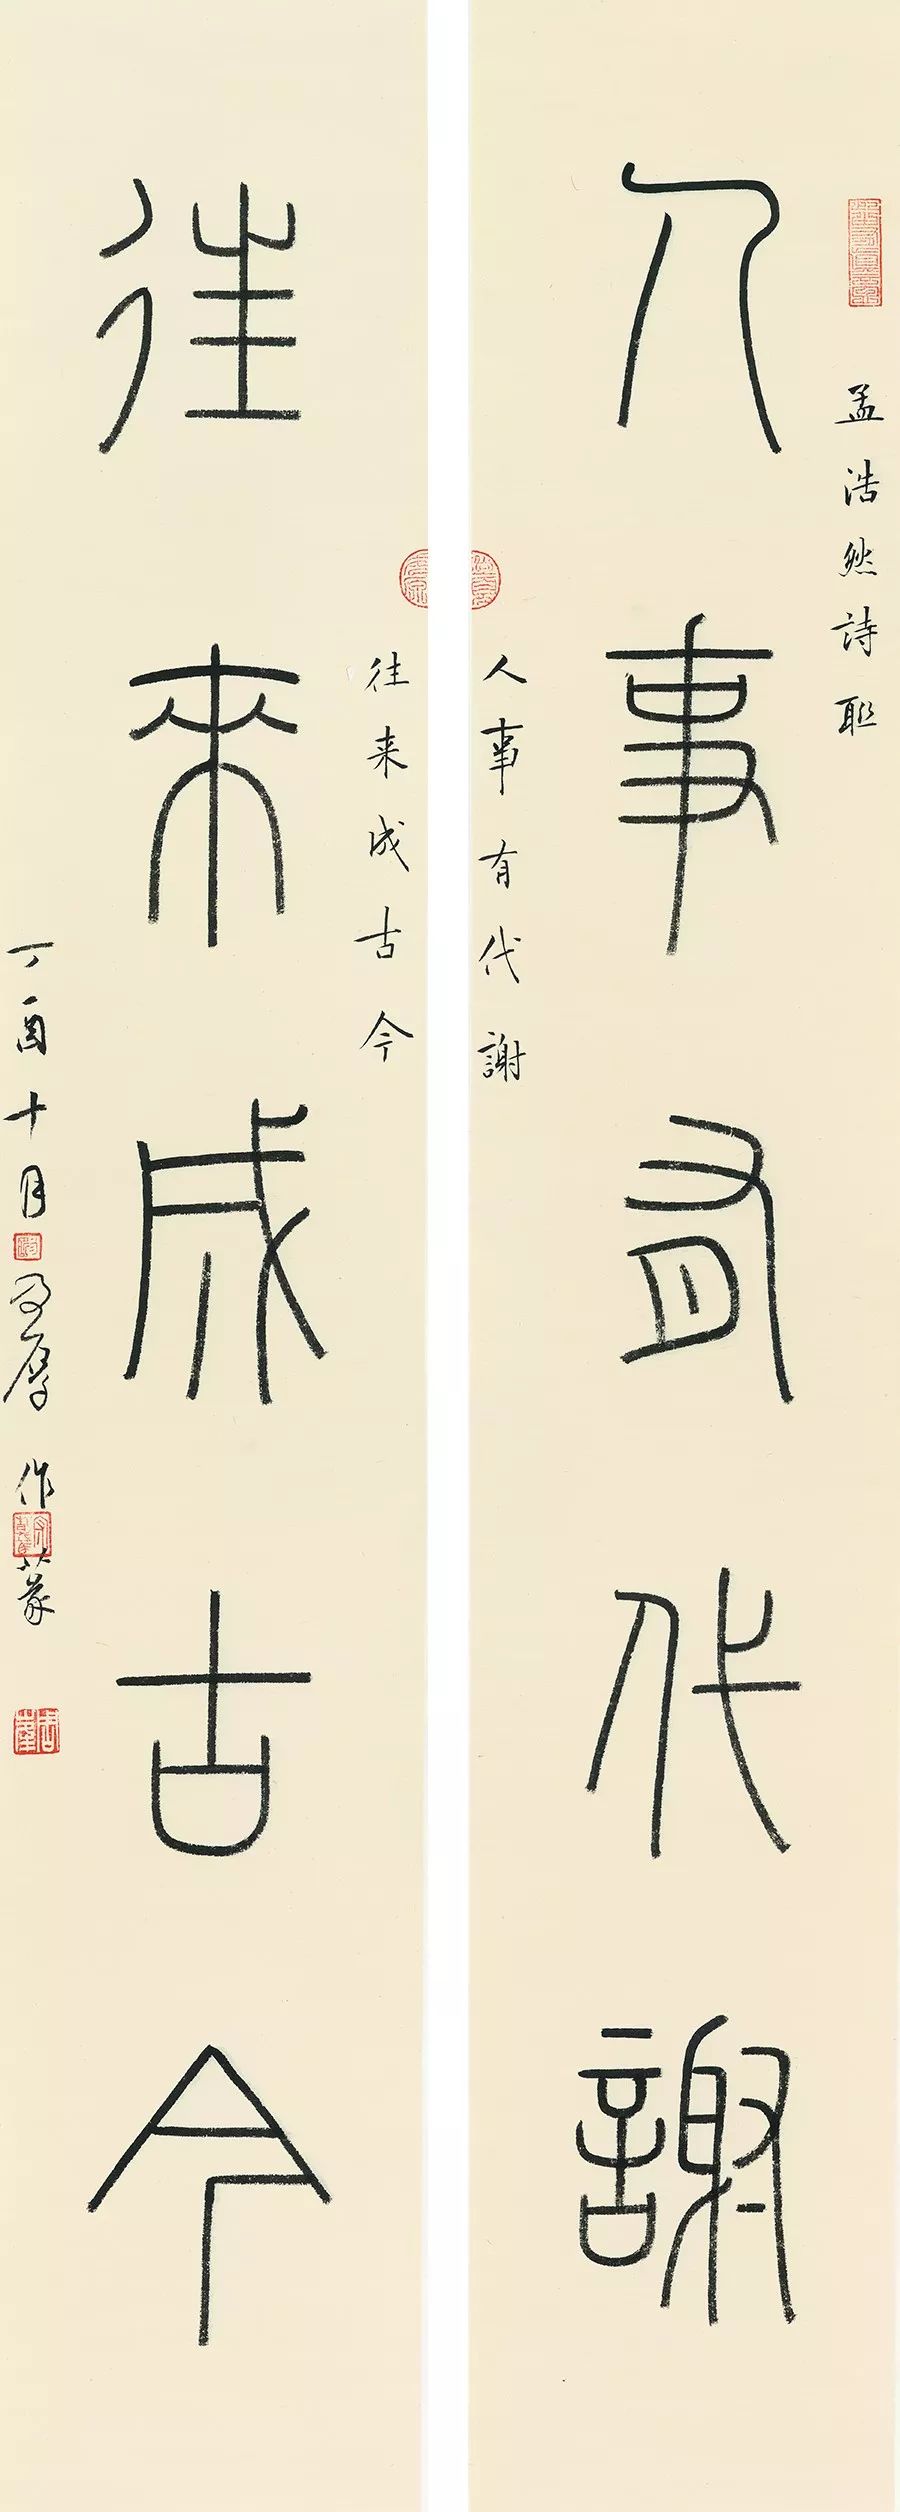 孟浩然詩联
人事有代謝
人事有代謝
往來成古今
往来成古今
丁酉十月
作篆